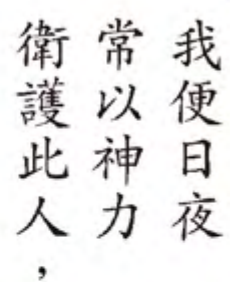 我便日夜
常以神力
衛護此人，